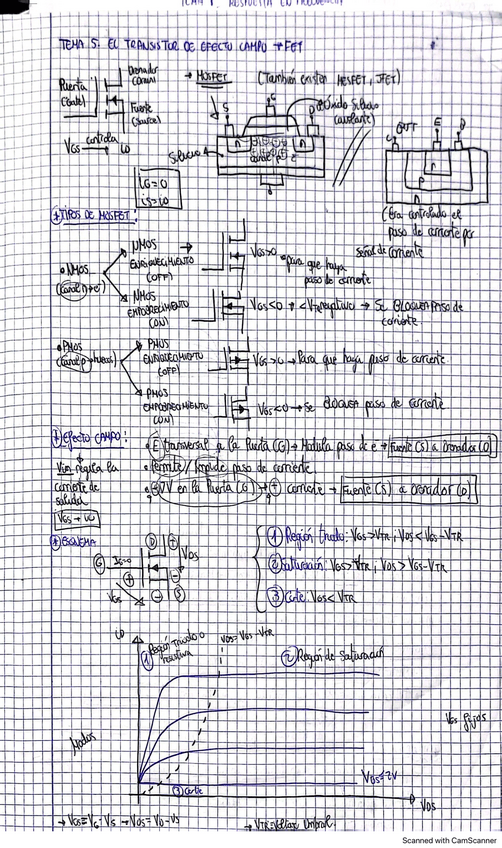 TEMA 5: EL TRANSISTOR DE EFECTO CAMPO → FET
Puerta (Gate)
Drenador (Drain)
Fuente (Source)
VGS controla iD
→ MOSFET (También existen MESFET, JFET)
S
G
D
Óxido Silicio (aislante)
Silicio
n
n
OUT
E
B
n
P
n
(Era controlado el paso de corriente por señal de corriente
iG=0
iS=iD
TIPOS DE MOSFET:
NMOS (Canal n)
NMOS ENRIQUECIMIENTO (OFF)
VGS>0 para que haya paso de corriente
NMOS EMPOBRECIMIENTO (ON)
→ SE BLOQUEA PASO de corriente
PMOS (Canal p → huecos)
PMOS ENRIQUECIMIENTO (OFF)
→ Para que haya paso de corriente
PMOS EMPOBRECIMIENTO (ON)
→ Se BLOQUEA paso de corriente
Efecto CAMPO:
E transversal a la Puerta (G) → Modula paso de e → Fuente (S) a Drenador (D)
Permite / Impide paso de corriente
V en la Puerta (G) → + corriente → Fuente (S) a Drenador (D)
Vin regula la corriente de salida
VGS → iD
ESQUEMA
D
G
IG=0
VDS
VGS
S
① Región triodo: VGS>VTR ; VDS < VGS-VTR
② Saturación: VGS>VTR ; VDS > VGS-VTR
③ Corte: VGS < VTR
iD
① Región triodo o resistiva
VDS=VGS-VTR
② Región de Saturación
Modos
VGS fijos
VGS=2V
③ Corte
VDS
→ VGS=VG-VS → VDS=VD-VS
→ VTR=Voltaje Umbral
Scanned with CamScanner